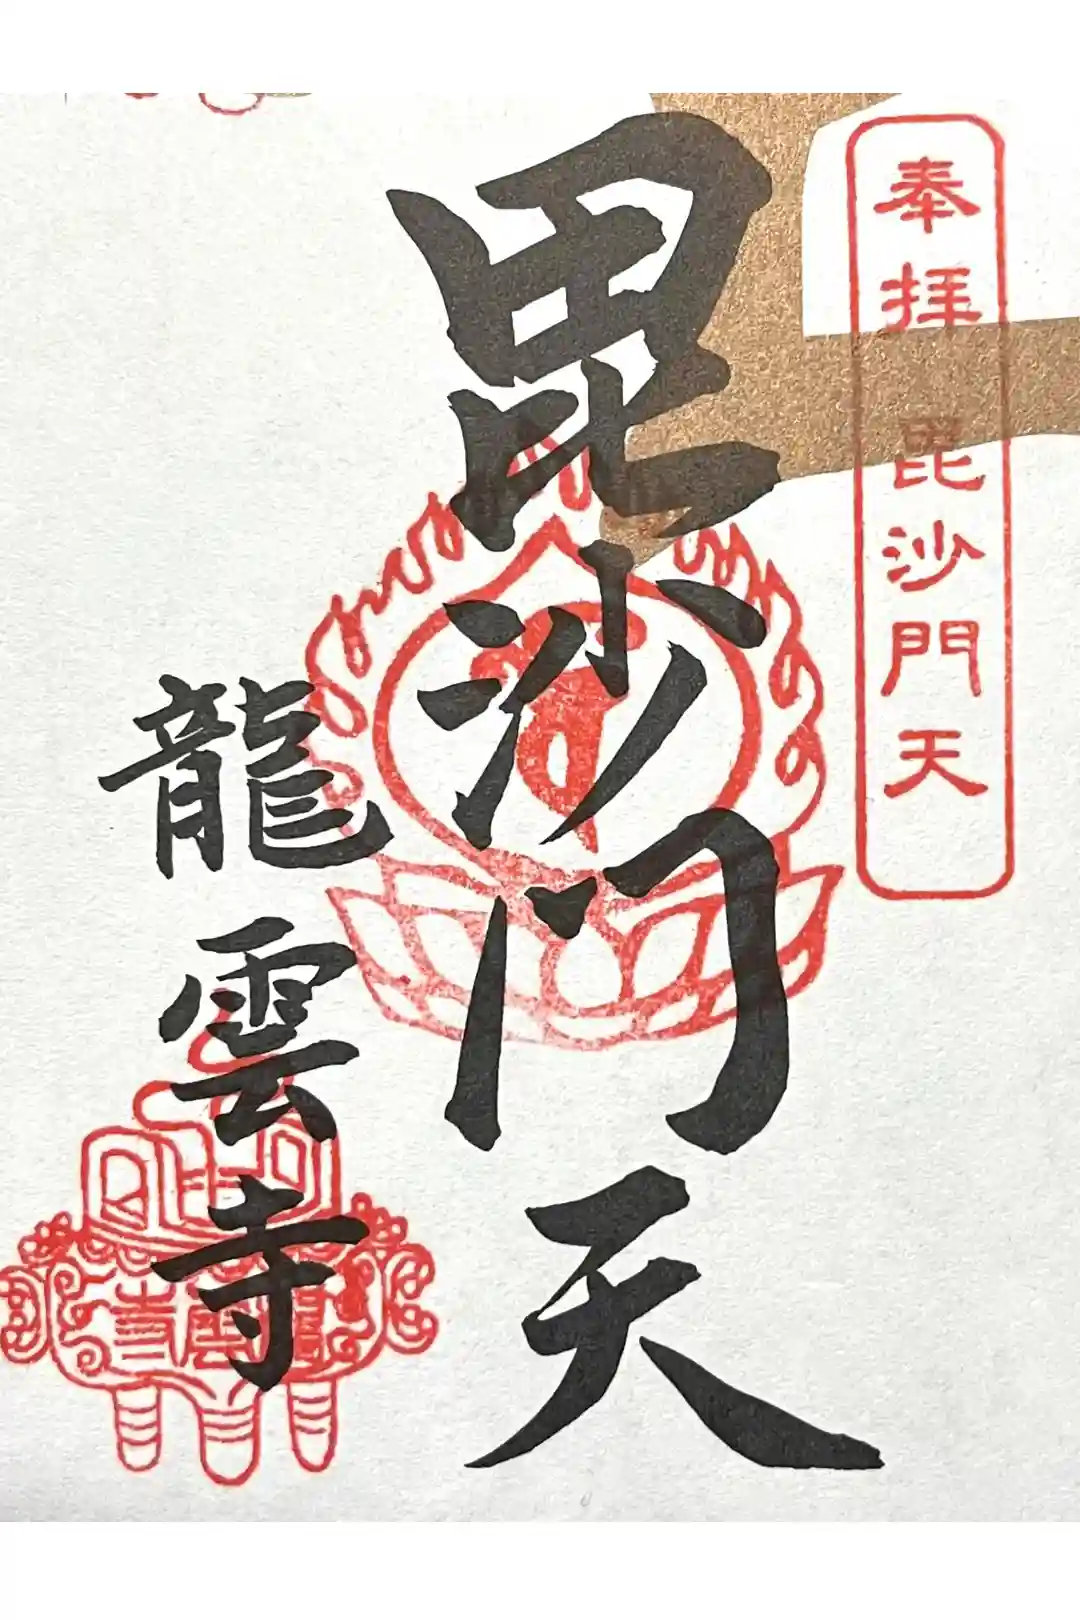 奉拝 毘沙門天
毘沙門天
龍雲寺
龍雲寺